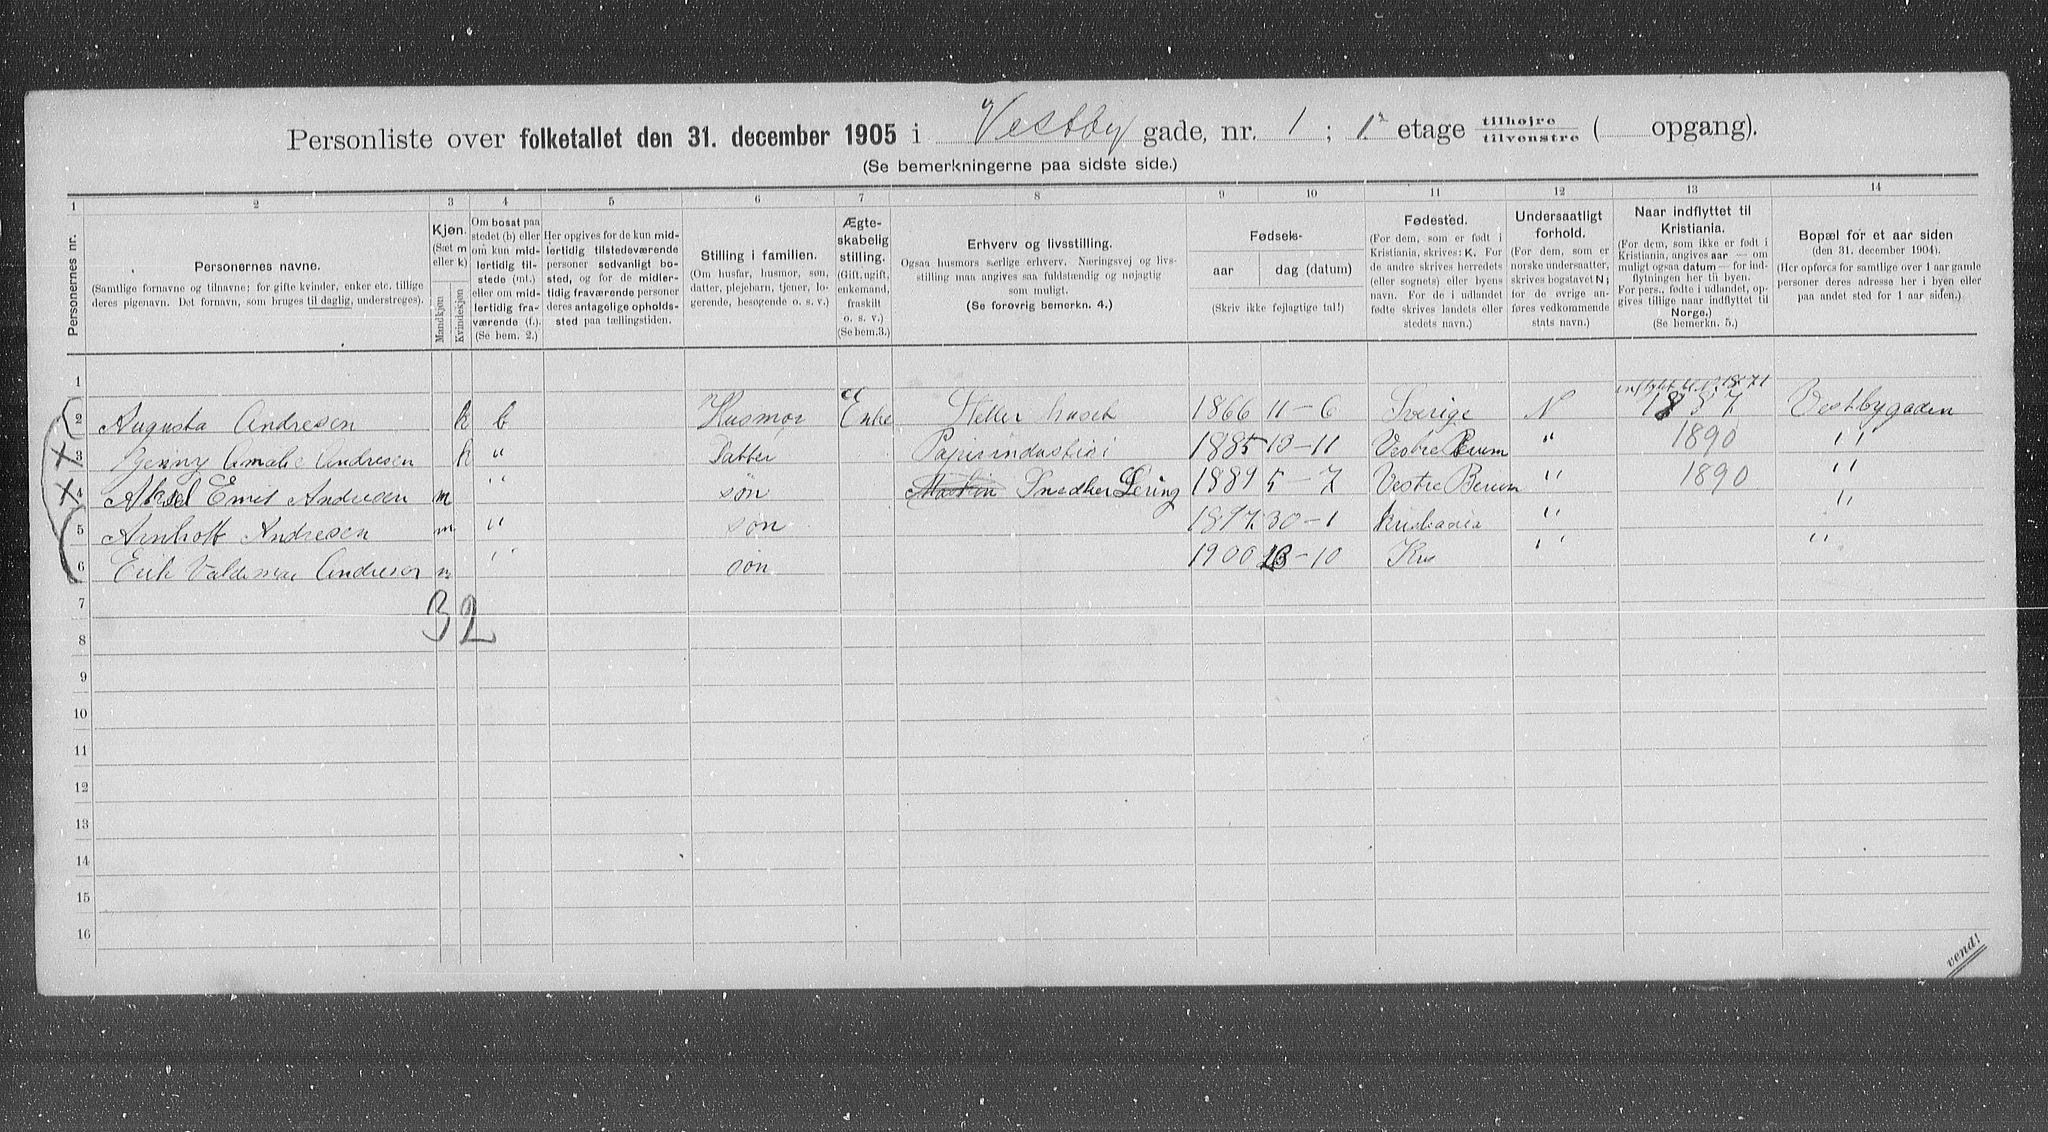 Personliste over folketallet den 31. december 1905 i Vestby gade, nr. 1 ; 1ste etage tilhøjre tilvenstre ( opgang).
(Se bemerkningerne paa sidste side.)
1 2 3 4 5 6 7 8 9 10 11 12 13 14
Personernes nr.
Personernes navne.
(Samtlige fornavne og tilnavne; for gifte kvinder, enker etc. tillige
deres pigenavn. Det fornavn, som bruges til daglig, understreges).
Kjøn.
(Sæt m
eller k)
Mandkjøn
Kvindekjøn
Om bosat paa
stedet (b) eller
om kun mid-
lertidig til-
stede (mt.)
eller om mid-
lertidig fra-
værende (f.).
(Se bem. 2.)
Her opgives for de kun mid-
lertidig tilstedeværende
personer sedvanligt bo-
sted, og for de midler-
tidig fraværende personer
deres antagelige opholds-
sted paa tællingstiden.
Stilling i familien.
(Om husfar, husmor, søn,
datter, plejebarn, tjener, lo-
gerende, besøgende o. s. v.)
Ægte-
skabelig
stilling.
(Gift, ugift,
enkemand,
fraskilt
o. s. v.)
(Se bem. 3.)
Erhverv og livsstilling.
Ogsaa husmors særlige erhverv. Næringsvej og livs-
stilling maa angives saa fuldstændig og nøjagtig
som muligt.
(Se forøvrig bemerkn. 4.)
Fødsels-
aar dag (datum)
(Skriv ikke fejlagtige tal!)
Fødested.
(For dem, som er født i
Kristiania, skrives: K. For
de andre skrives herredets
(eller sognets) eller byens
navn. For de i udlandet
fødte skrives landets eller
stedets navn.)
Undersaatligt
forhold.
(For dem, som er
norske undersaatter,
skrives bogstavet N;
for de øvrige an-
føres vedkommende
stats navn.)
Naar indflyttet til
Kristiania.
(For dem, som ikke er født i
Kristiania, angives aar — om
muligt ogsaa datum — for ind-
flytningen her til byen.
For pers., fødte i udlandet, op-
gives tillige naar indflyttet til
Norge.)
(Se bemerkn. 5.)
Bopæl for et aar siden
(den 31. december 1904).
(Her opføres for samtlige over 1 aar gamle
personer deres adresse her i byen eller
paa andet sted for 1 aar siden.)
1
2 Augusta Andresen k b Husmor Enke Steller huset 1866 11-6 Sverige N Vestbygaden
3 Jenny Amalie Andresen k " Datter 1885 13-11 Vestre Berum " 1890 "
4 Aksel Emil Andresen m " søn Snedker Lering 1889 5-7 Vestre Berum " 1890 "
5 Arnholt Andresen m " søn 1897 30-1 Kristiania " "
6 Erik Valdemar Andresen m " søn 1900 13-10 Kra " "
7
3 2
8
9
10
11
12
13
14
15
16
vend!